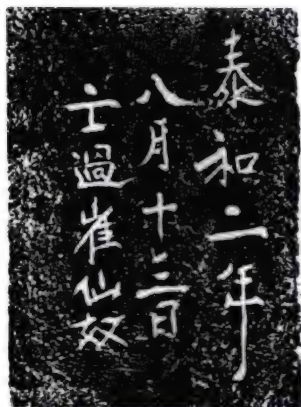 泰和二年
八月十二日
亡過崔仙奴